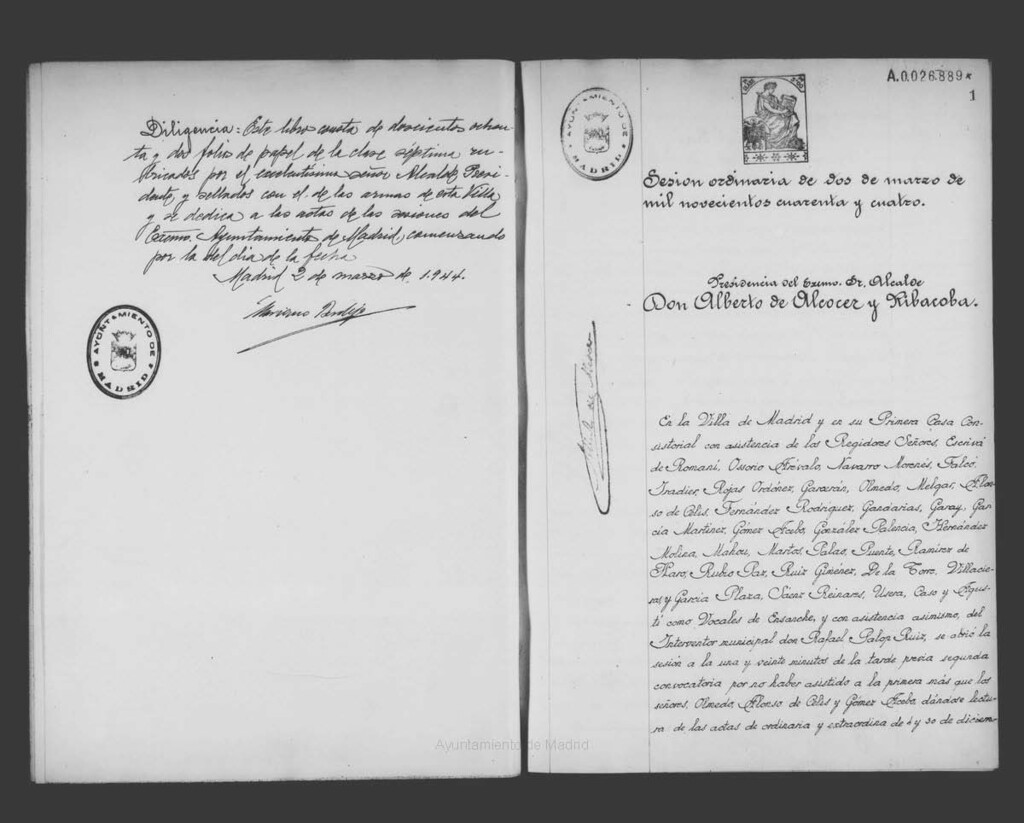 Diligencia: Este libro consta de doscientos ochen-
ta y dos folios de papel de la clase séptima ru-
bricados por el excelentísimo señor Alcalde Presi-
dente y sellados con el de las armas de esta Villa
y se dedica a las actas de las sesiones del
Excmo. Ayuntamiento de Madrid, comenzando
por la del dia de la fecha
Madrid 2 de marzo de 1.944.
Mariano
AYUNTAMIENTO DE
MADRID
AYUNTAMIENTO DE
MADRID
A.0.026.889*
1
Sesion ordinaria de dos de marzo de
mil novecientos cuarenta y cuatro.
Presidencia del Excmo. Sr. Alcalde
Don Alberto de Alcocer y Ribacoba.
En la Villa de Madrid y en su Primera Casa Con-
sistorial con asistencia de los Regidores Señores, Escrivá
de Romaní, Ossorio Arévalo, Navarro Morenés, Falcó,
Iradier, Rojas Ordóñez, Garcerán, Olmedo, Melgar, Alon-
so de Celis, Fernández Rodríguez, Gandarias, Garay, Gar-
cía Martínez, Gómez Acebo, González Palencia, Hernández
Molina, Mahou, Martos, Palao, Puente, Ramírez de
Haro, Rubio Paz, Ruiz Giménez, De la Torre, Villacie-
ros y García Plaza, Sáenz Reinares, Usera, Caso y Agus-
tí como Vocales de Ensanche, y con asistencia asimismo, del
Interventor municipal don Rafael Palop Ruiz, se abrió la
sesión a la una y veinte minutos de la tarde previa segunda
convocatoria por no haber asistido a la primera más que los
señores, Olmedo, Alonso de Celis y Gómez Acebo, dándose lectu-
ra de las actas de ordinaria y extraordina de 6 y 30 de diciem-
Ayuntamiento de Madrid